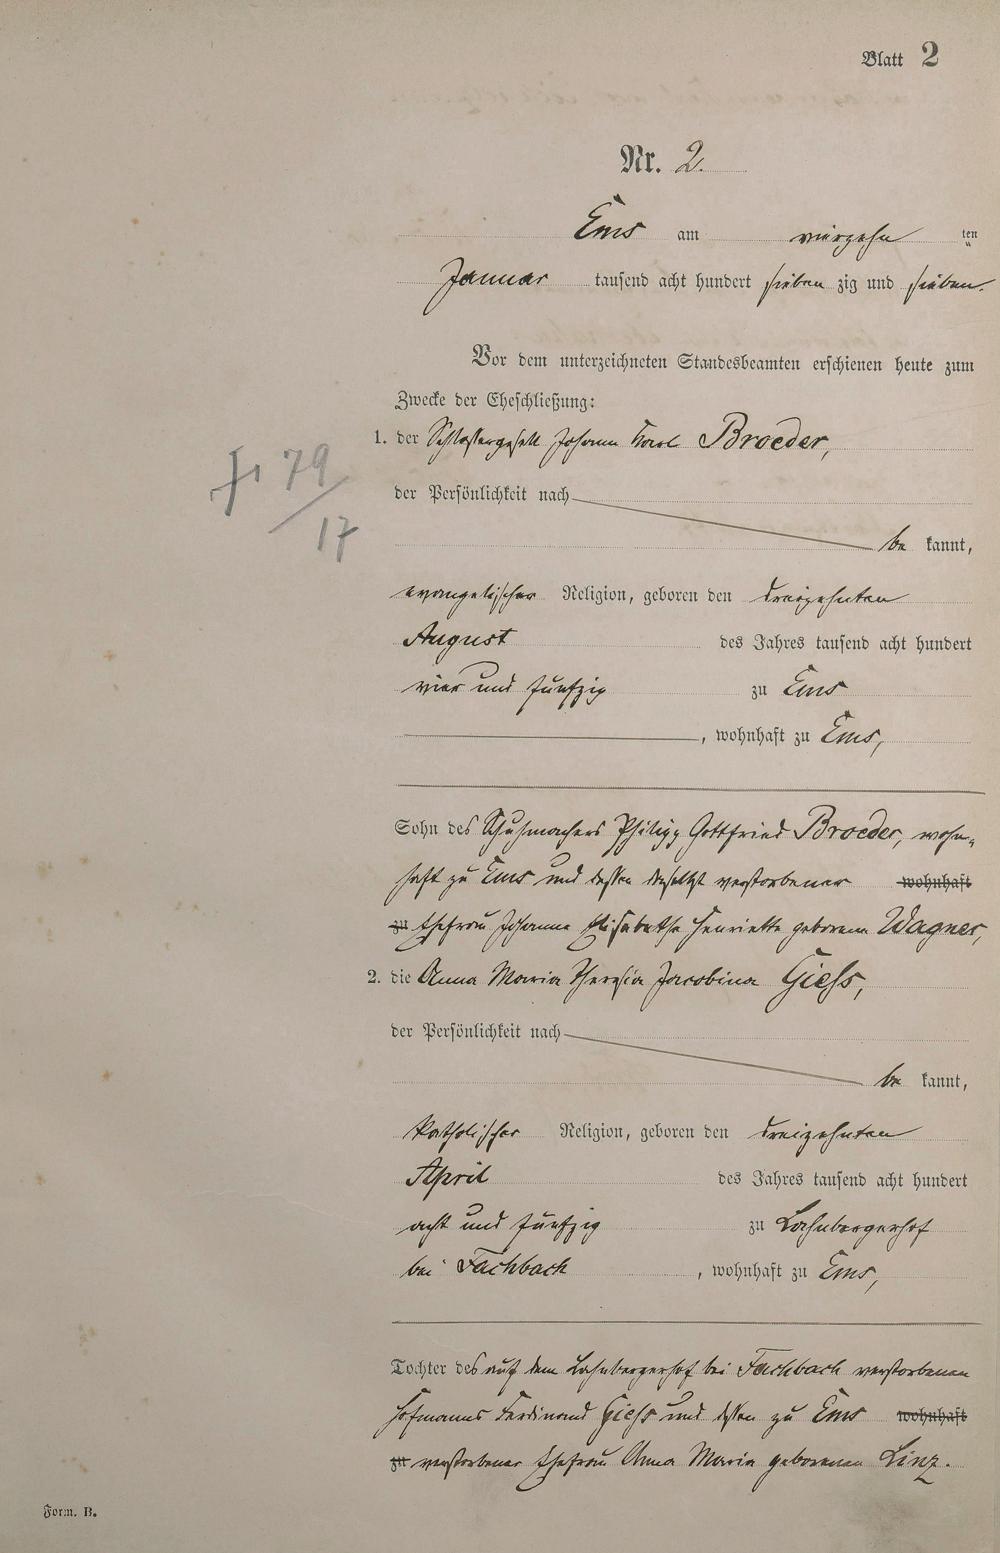 Blatt 2
Nr. 2.
Ems am vierzehn ten
Januar tausend acht hundert sieben zig und sieben.
Vor dem unterzeichneten Standesbeamten erschienen heute zum
Zwecke der Eheschließung:
1. der Schlossergesell Johann Karl Broeder,
der Persönlichkeit nach
be kannt,
evangelischer Religion, geboren den dreizehnten
August des Jahres tausend acht hundert
vier und fünfzig zu Ems
, wohnhaft zu Ems,
Sohn des Schuhmachers Philipp Gottfried Broeder, wohn-
haft zu Ems und dessen daselbst verstorbener wohnhaft
zu Ehefrau Johanna Elisabetha Henriette geborene Wagner,
2. die Anna Maria Theresia Jacobina Giehs,
der Persönlichkeit nach
be kannt,
katholischer Religion, geboren den dreizehnten
April des Jahres tausend acht hundert
acht und fünfzig zu Lahnbergerhof
bei Fachbach , wohnhaft zu Ems,
Tochter des auf dem Lahnbergerhof bei Fachbach verstorbenen
Hofmanns Ferdinand Giehs und dessen zu Ems wohnhaft
zu verstorbener Ehefrau Anna Maria geborenen Linz.
79
17
Form. B.